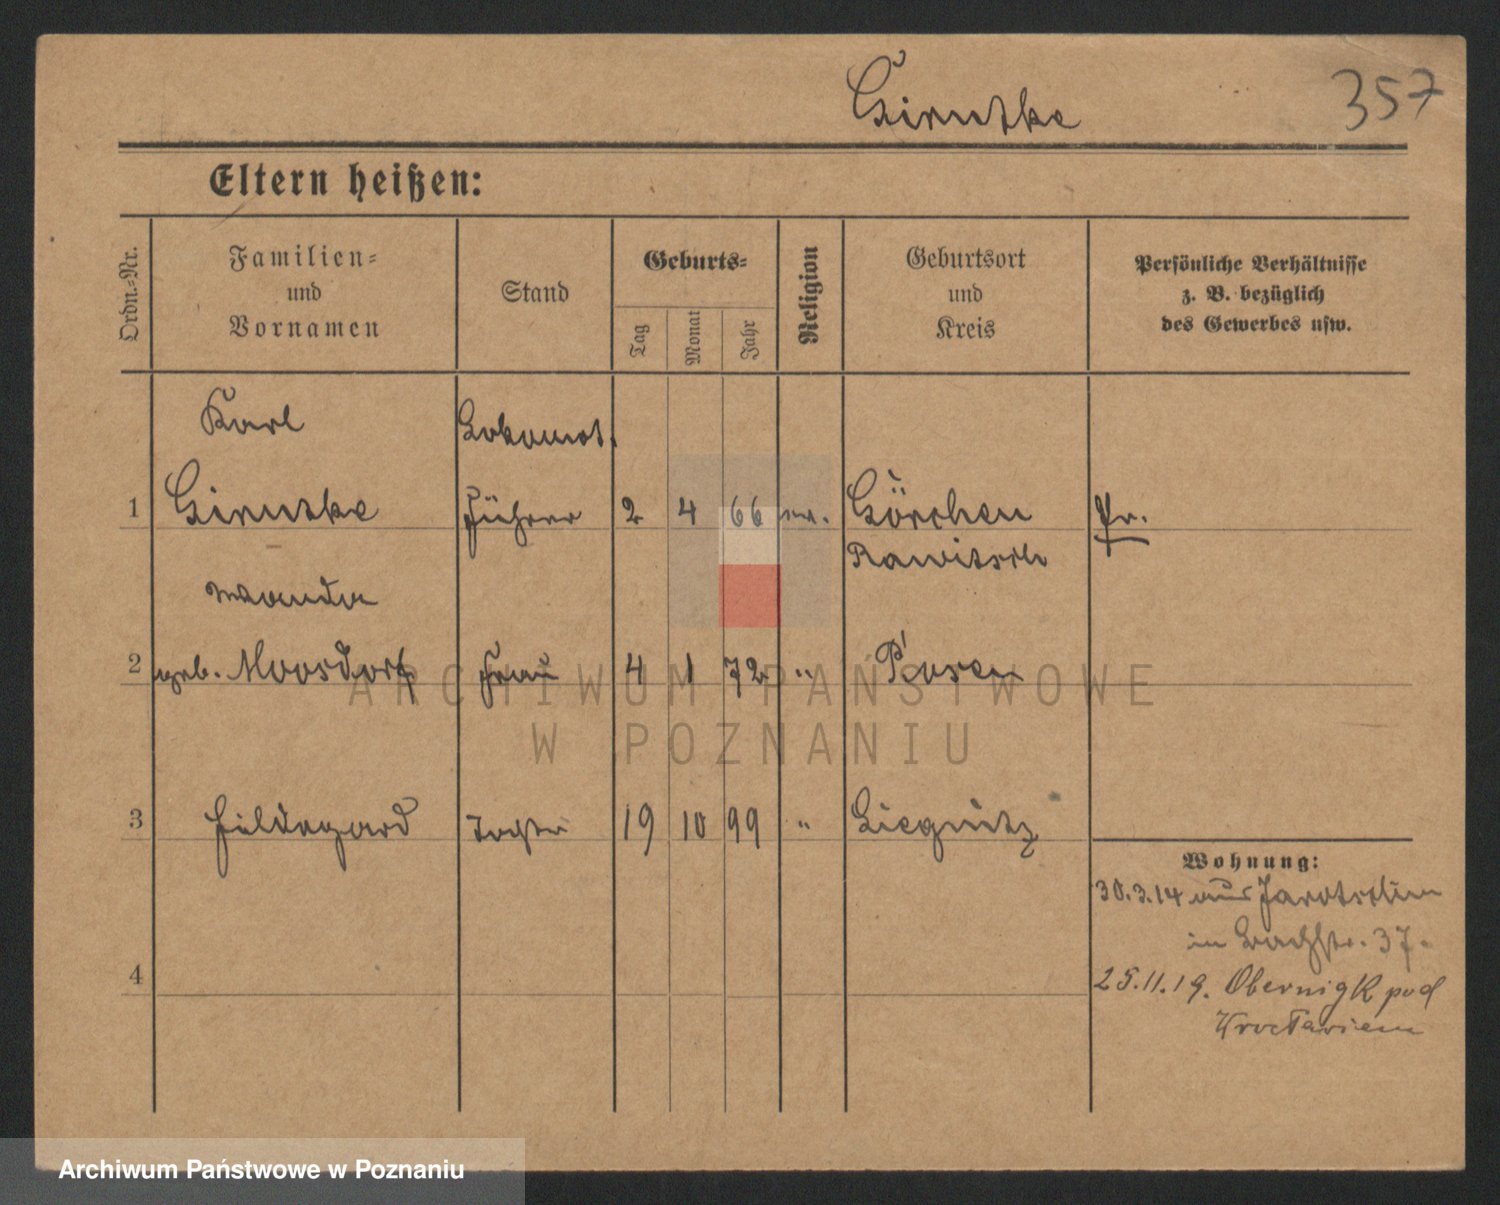 357
Eltern heißen:
Ordn.-Nr.
Familien-
und
Vornamen
Stand
Geburts-
Tag
Monat
Jahr
Religion
Geburtsort
und
Kreis
Persönliche Verhältnisse
z. B. bezüglich
des Gewerbes usw.
Karl
Lokomot.
1 Führer 2 4 66 Görchen Pr.
Rawitsch
Wanda
2 geb. Moosdorf Frau 4 1 72 " Posen
3 Hildegard Tochter 19 10 99 " Liegnitz
Wohnung:
30.3.14 aus Jarotschin
in Bachstr. 37.
4
25.11.19. Obernigk pod
Wrocławiem
ARCHIWUM PAŃSTWOWE
W POZNANIU
Archiwum Państwowe w Poznaniu